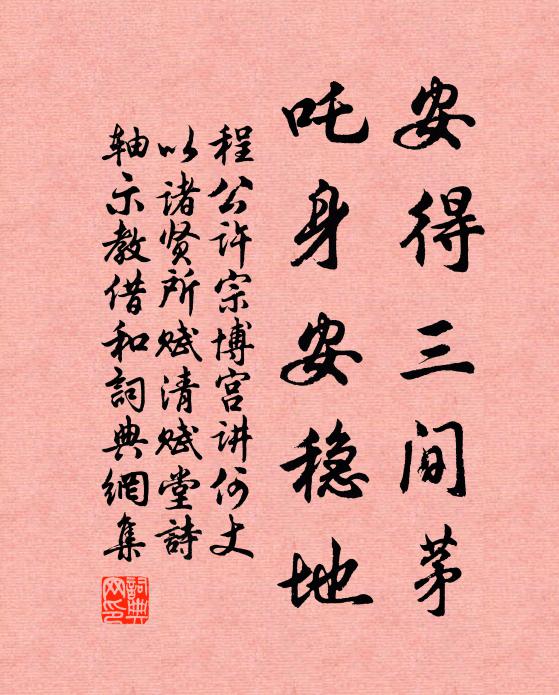 安得三间茅
吒身安稳地
程公许宗博宫讲何丈
以诸贤所赋清赋堂詩
轴示教借和詞典網集
詞典网印